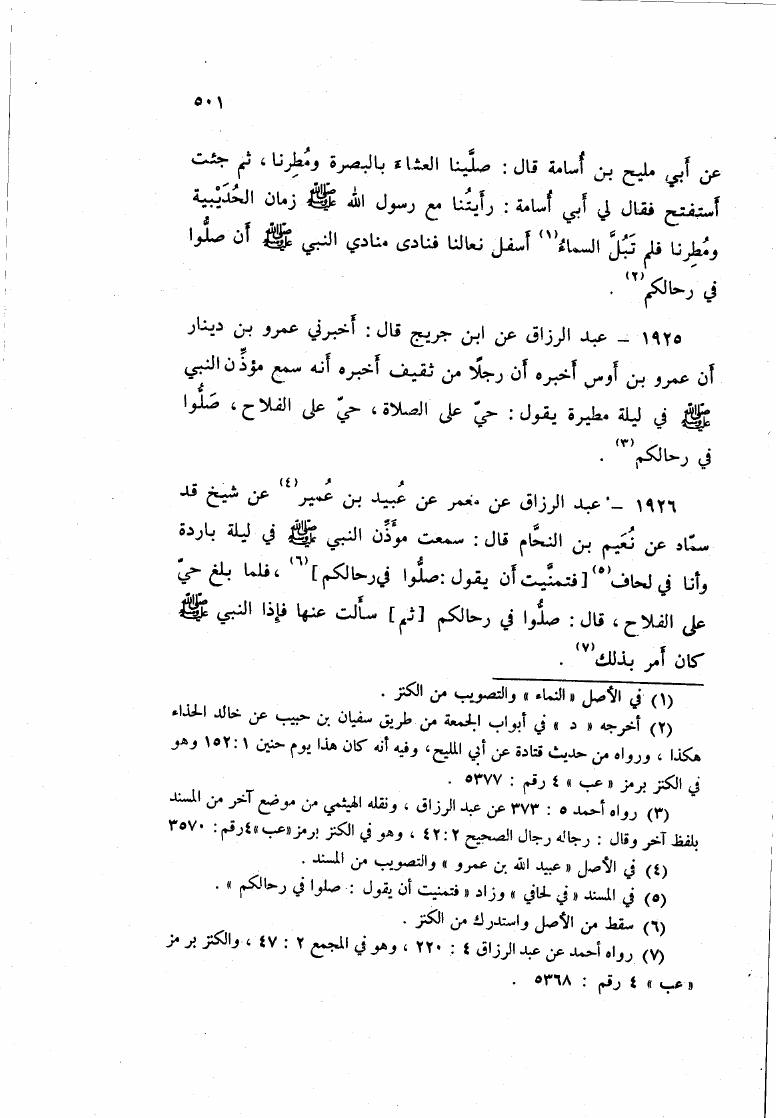 ٥٠١
عن أبي مليح بن أُسامة قال : صلَّينا العشاءَ بالبصرة ومُطِرنا ، ثم جئت
أستفتح فقال لي أبي أُسامة : رأيتُنا مع رسول الله ﷺ زمان الحُدَيْبية
ومُطِرنا فلم تَبُلَّ السماءُ(١) أسفل نعالنا فنادى منادي النبي ﷺ أن صلُّوا
في رحالكم(٢) .
١٩٢٥ – عبد الرزاق عن ابن جريج قال : أخبرني عمرو بن دينار
أن عمرو بن أوس أخبره أن رجلًا من ثقيف أخبره أنه سمع مؤذِّن النبي
ﷺ في ليلة مطيرة يقول : حيّ على الصلاة ، حيّ على الفلاح ، صَلُّوا
في رحالكم(٣) .
١٩٢٦ – عبد الرزاق عن معمر عن عُبيد بن عُمير(٤) عن شيخ قد
سمّاه عن نُعَيم بن النحَّام قال : سمعت مؤَذِّن النبي ﷺ في ليلة باردة
وأنا في لحاف(٥) [فتمنَّيت أن يقول : صلُّوا في رحالكم](٦) ، فلما بلغ حيّ
على الفلاح ، قال : صلُّوا في رحالكم [ثم] سألت عنها فإذا النبي ﷺ
كان أمر بذلك(٧) .
(١) في الأصل « النماء » والتصويب من الكنز .
(٢) أخرجه « د » في أبواب الجمعة من طريق سفيان بن حبيب عن خالد الحذاء
هكذا ، ورواه من حديث قتادة عن أبي المليح ، وفيه أنه كان هذا يوم حنين ١ : ١٥٢ وهو
في الكنز برمز « عب » ٤ رقم : ٥٣٧٧ .
(٣) رواه أحمد ٥ : ٣٧٣ عن عبد الرزاق ، ونقله الهيثمي من موضع آخر من المسند
بلفظ آخر وقال : رجاله رجال الصحيح ٢ : ٤٢ ، وهو في الكنز برمز «عب» ٤ رقم : ٣٥٧٠
(٤) في الأصل « عبيد الله بن عمرو » والتصويب من المسند .
(٥) في المسند « في لحافي » وزاد « فتمنيت أن يقول : صلوا في رحالكم » .
(٦) سقط من الأصل واستدرك من الكنز .
(٧) رواه أحمد عن عبد الرزاق ٤ : ٢٢٠ ، وهو في المجمع ٢ : ٤٧ ، والكنز برمز
« عب » ٤ رقم : ٥٣٦٨ .